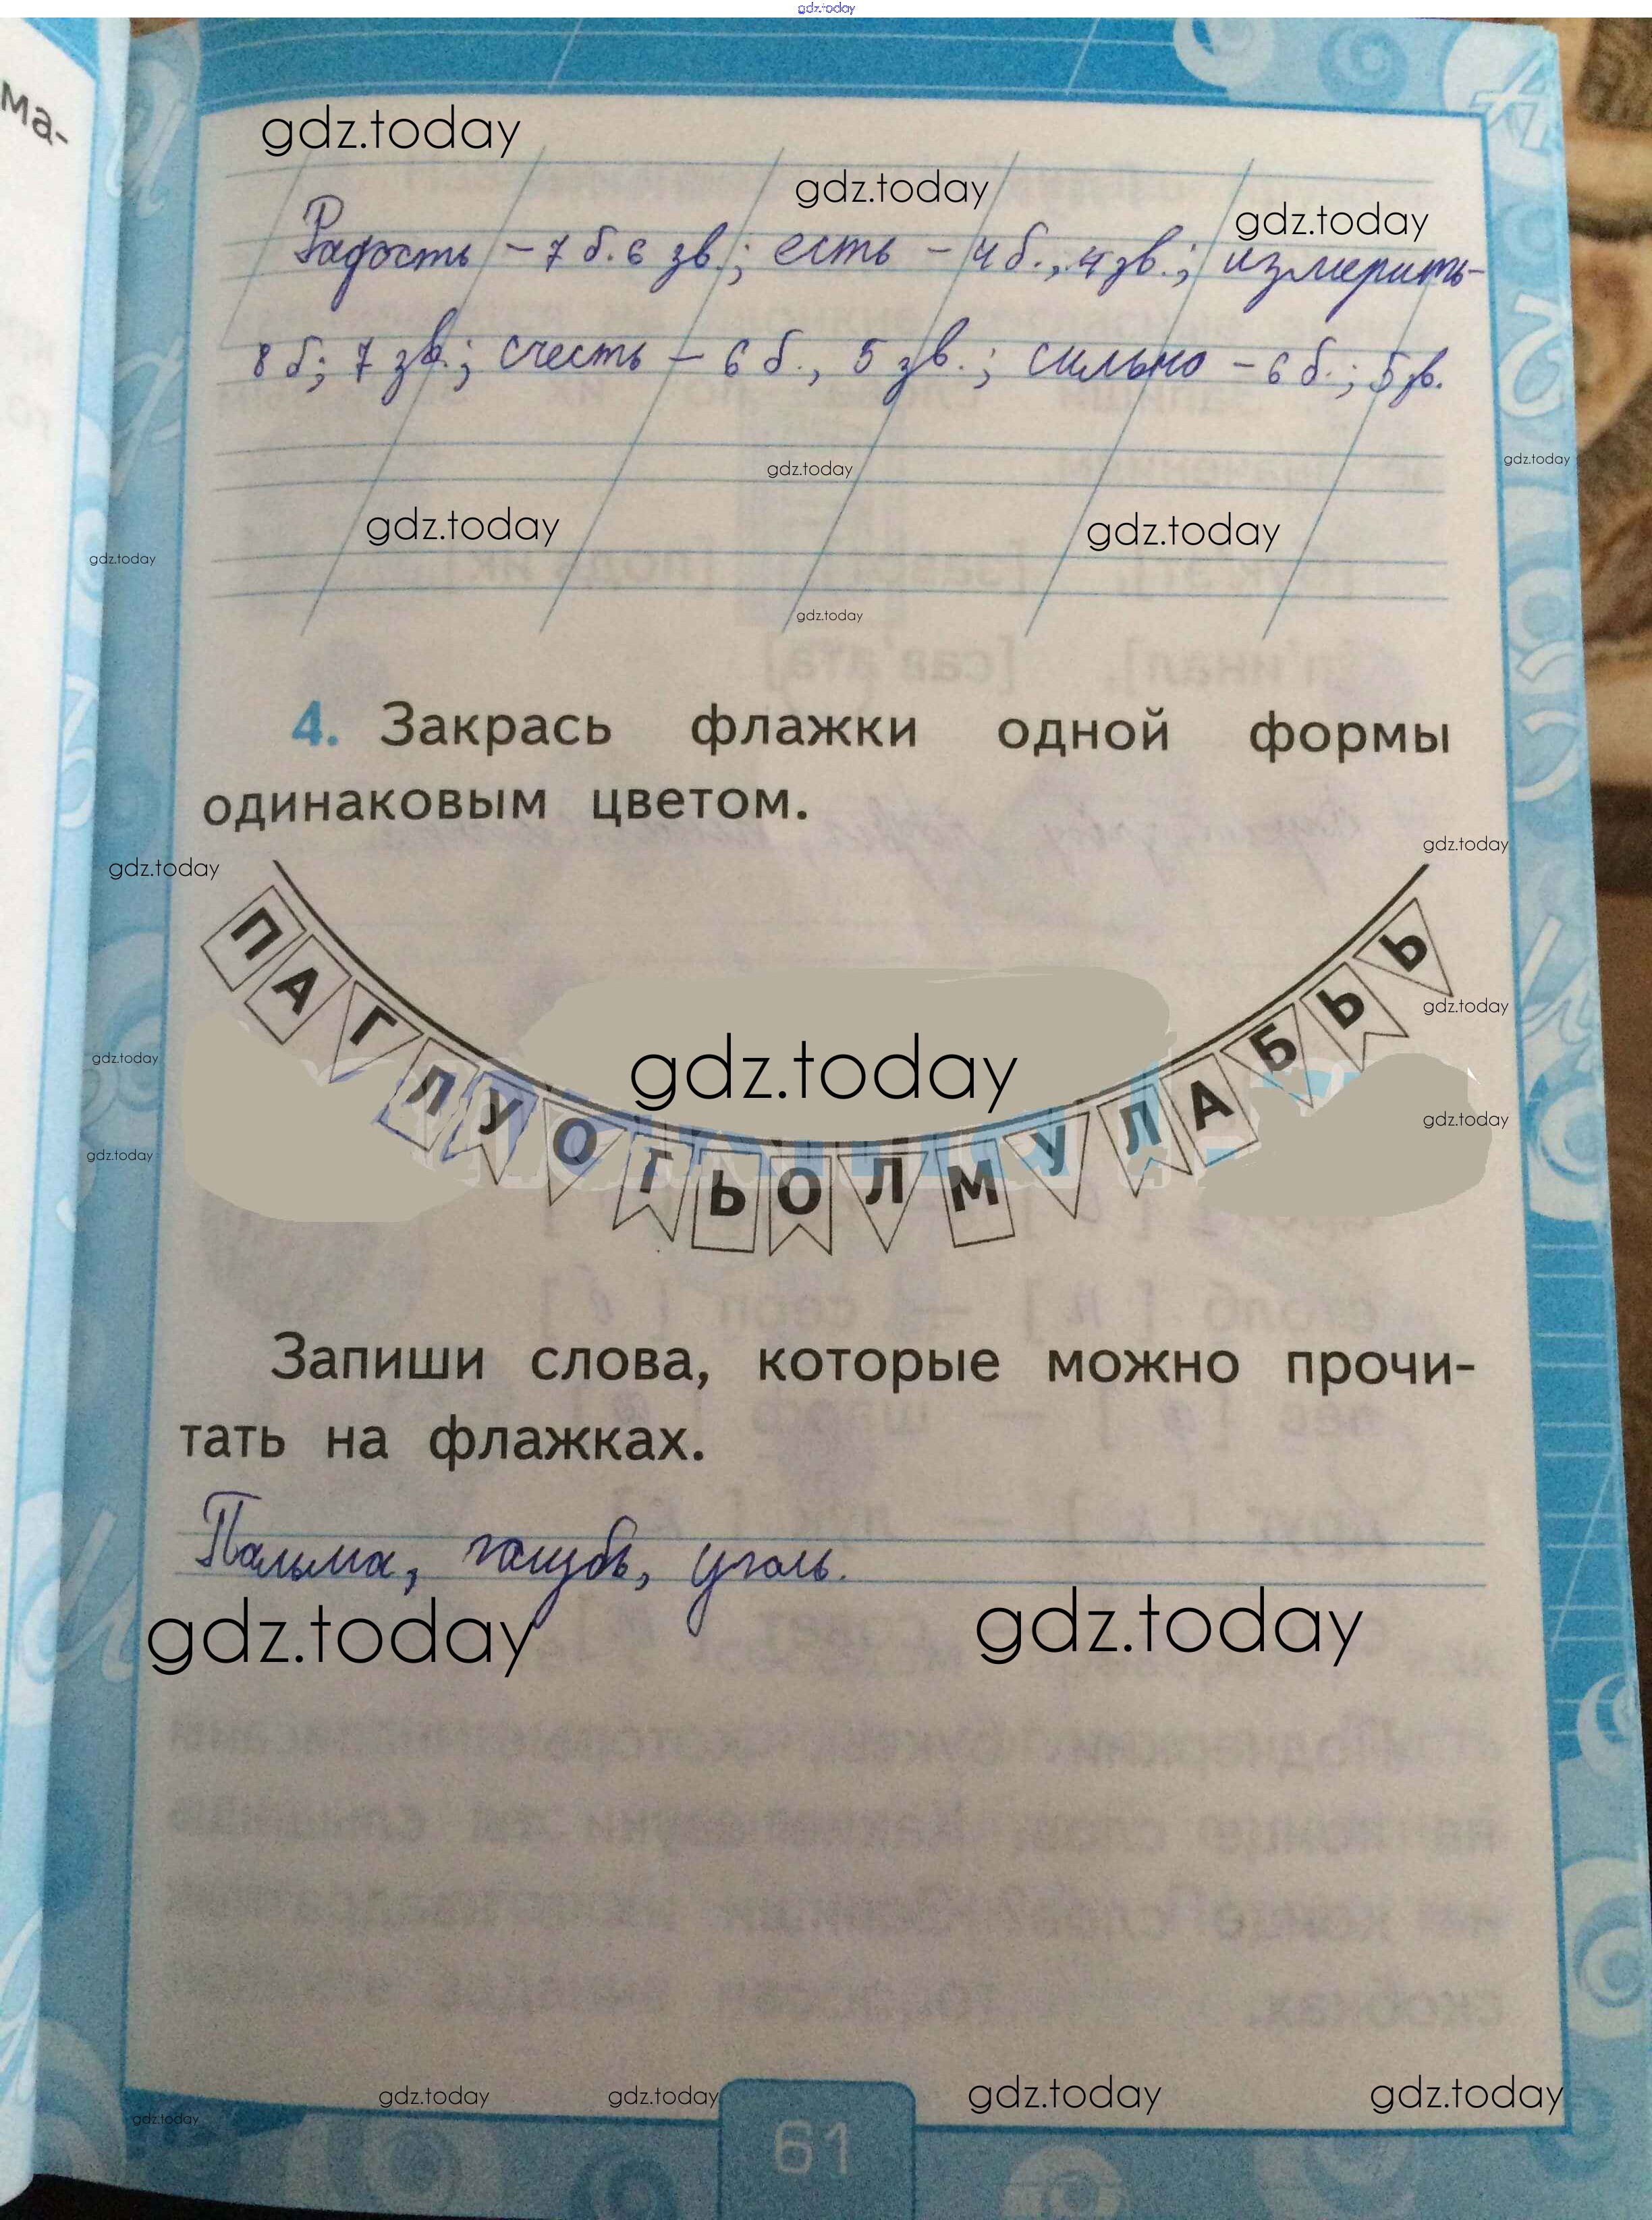 gdz.today
ма-
gdz.today
gdz.today
gdz.today
Радость – 7 б. 6 зв.; есть – 4 б., 4 зв.; измерить-
8 б; 7 зв.; счесть – 6 б., 5 зв.; сильно – 6 б.; 5 зв.
gdz.today
gdz.today
gdz.today
gdz.today
gdz.today
gdz.today
4. Закрась флажки одной формы
одинаковым цветом.
gdz.today
gdz.today
П А Г Л У О Г Ь О Л М У Л А Б Ь Ь
gdz.today
gdz.today
gdz.today
gdz.today
gdz.today
Запиши слова, которые можно прочи-
тать на флажках.
Пальма, голубь, уголь.
gdz.today
gdz.today
gdz.today
gdz.today
gdz.today
gdz.today
gdz.today
61